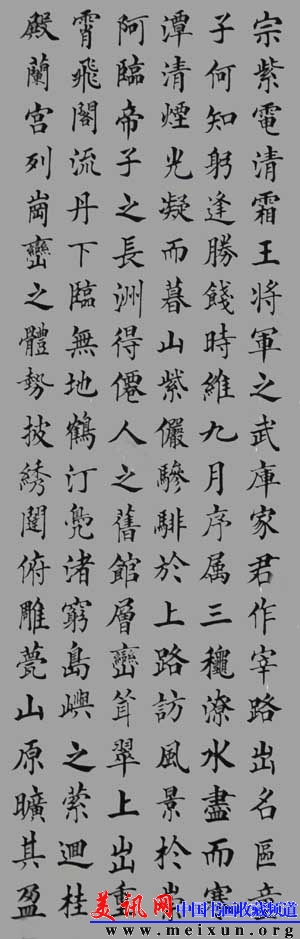 宗紫電清霜王将軍之武庫家君作宰路出名區童
子何知躬逢勝餞時維九月序属三穐潦水盡而寒
潭清煙光凝而暮山紫儼驂騑於上路訪風景於崇
阿臨帝子之長洲得僊人之舊館層巒聳翠上出重
霄飛閣流丹下臨無地鶴汀鳧渚窮島嶼之萦迴桂
殿蘭宮列崗巒之體勢披綉闥俯雕甍山原曠其盈
美讯网 中国书画收藏频道
www.meixun.org